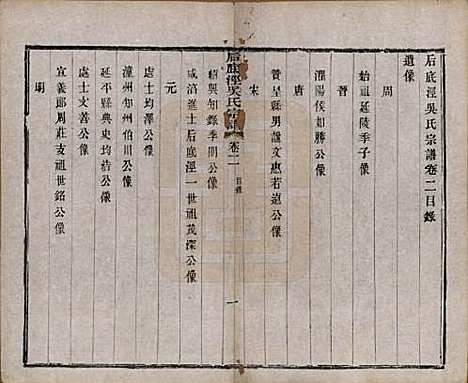 后底涇吳氏宗譜卷二目錄
遺像
周
始祖延陵季子像
晉
灌陽侯如勝公像
唐
贊皇縣男謚文惠若遠公像
宋
后底涇吳氏宗譜
卷二
目錄
一
紹興知錄季開公像
咸淳進士后底涇一世祖茂深公像
元
處士均澤公像
漳州知州伯川公像
延平縣典史均浩公像
處士文善公像
宣義郎周莊支祖世銘公像
明